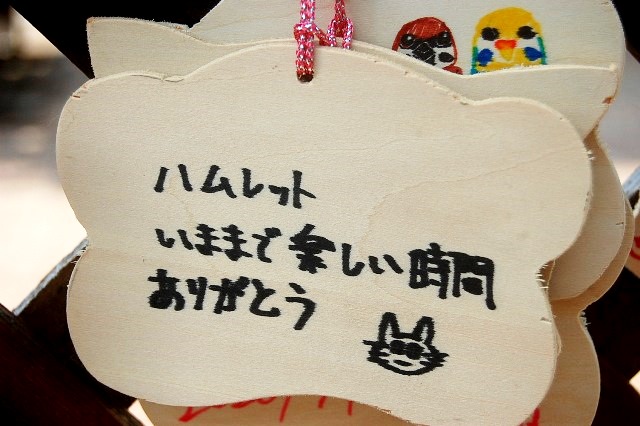 ハムレット
いままで楽しい時間
ありがとう